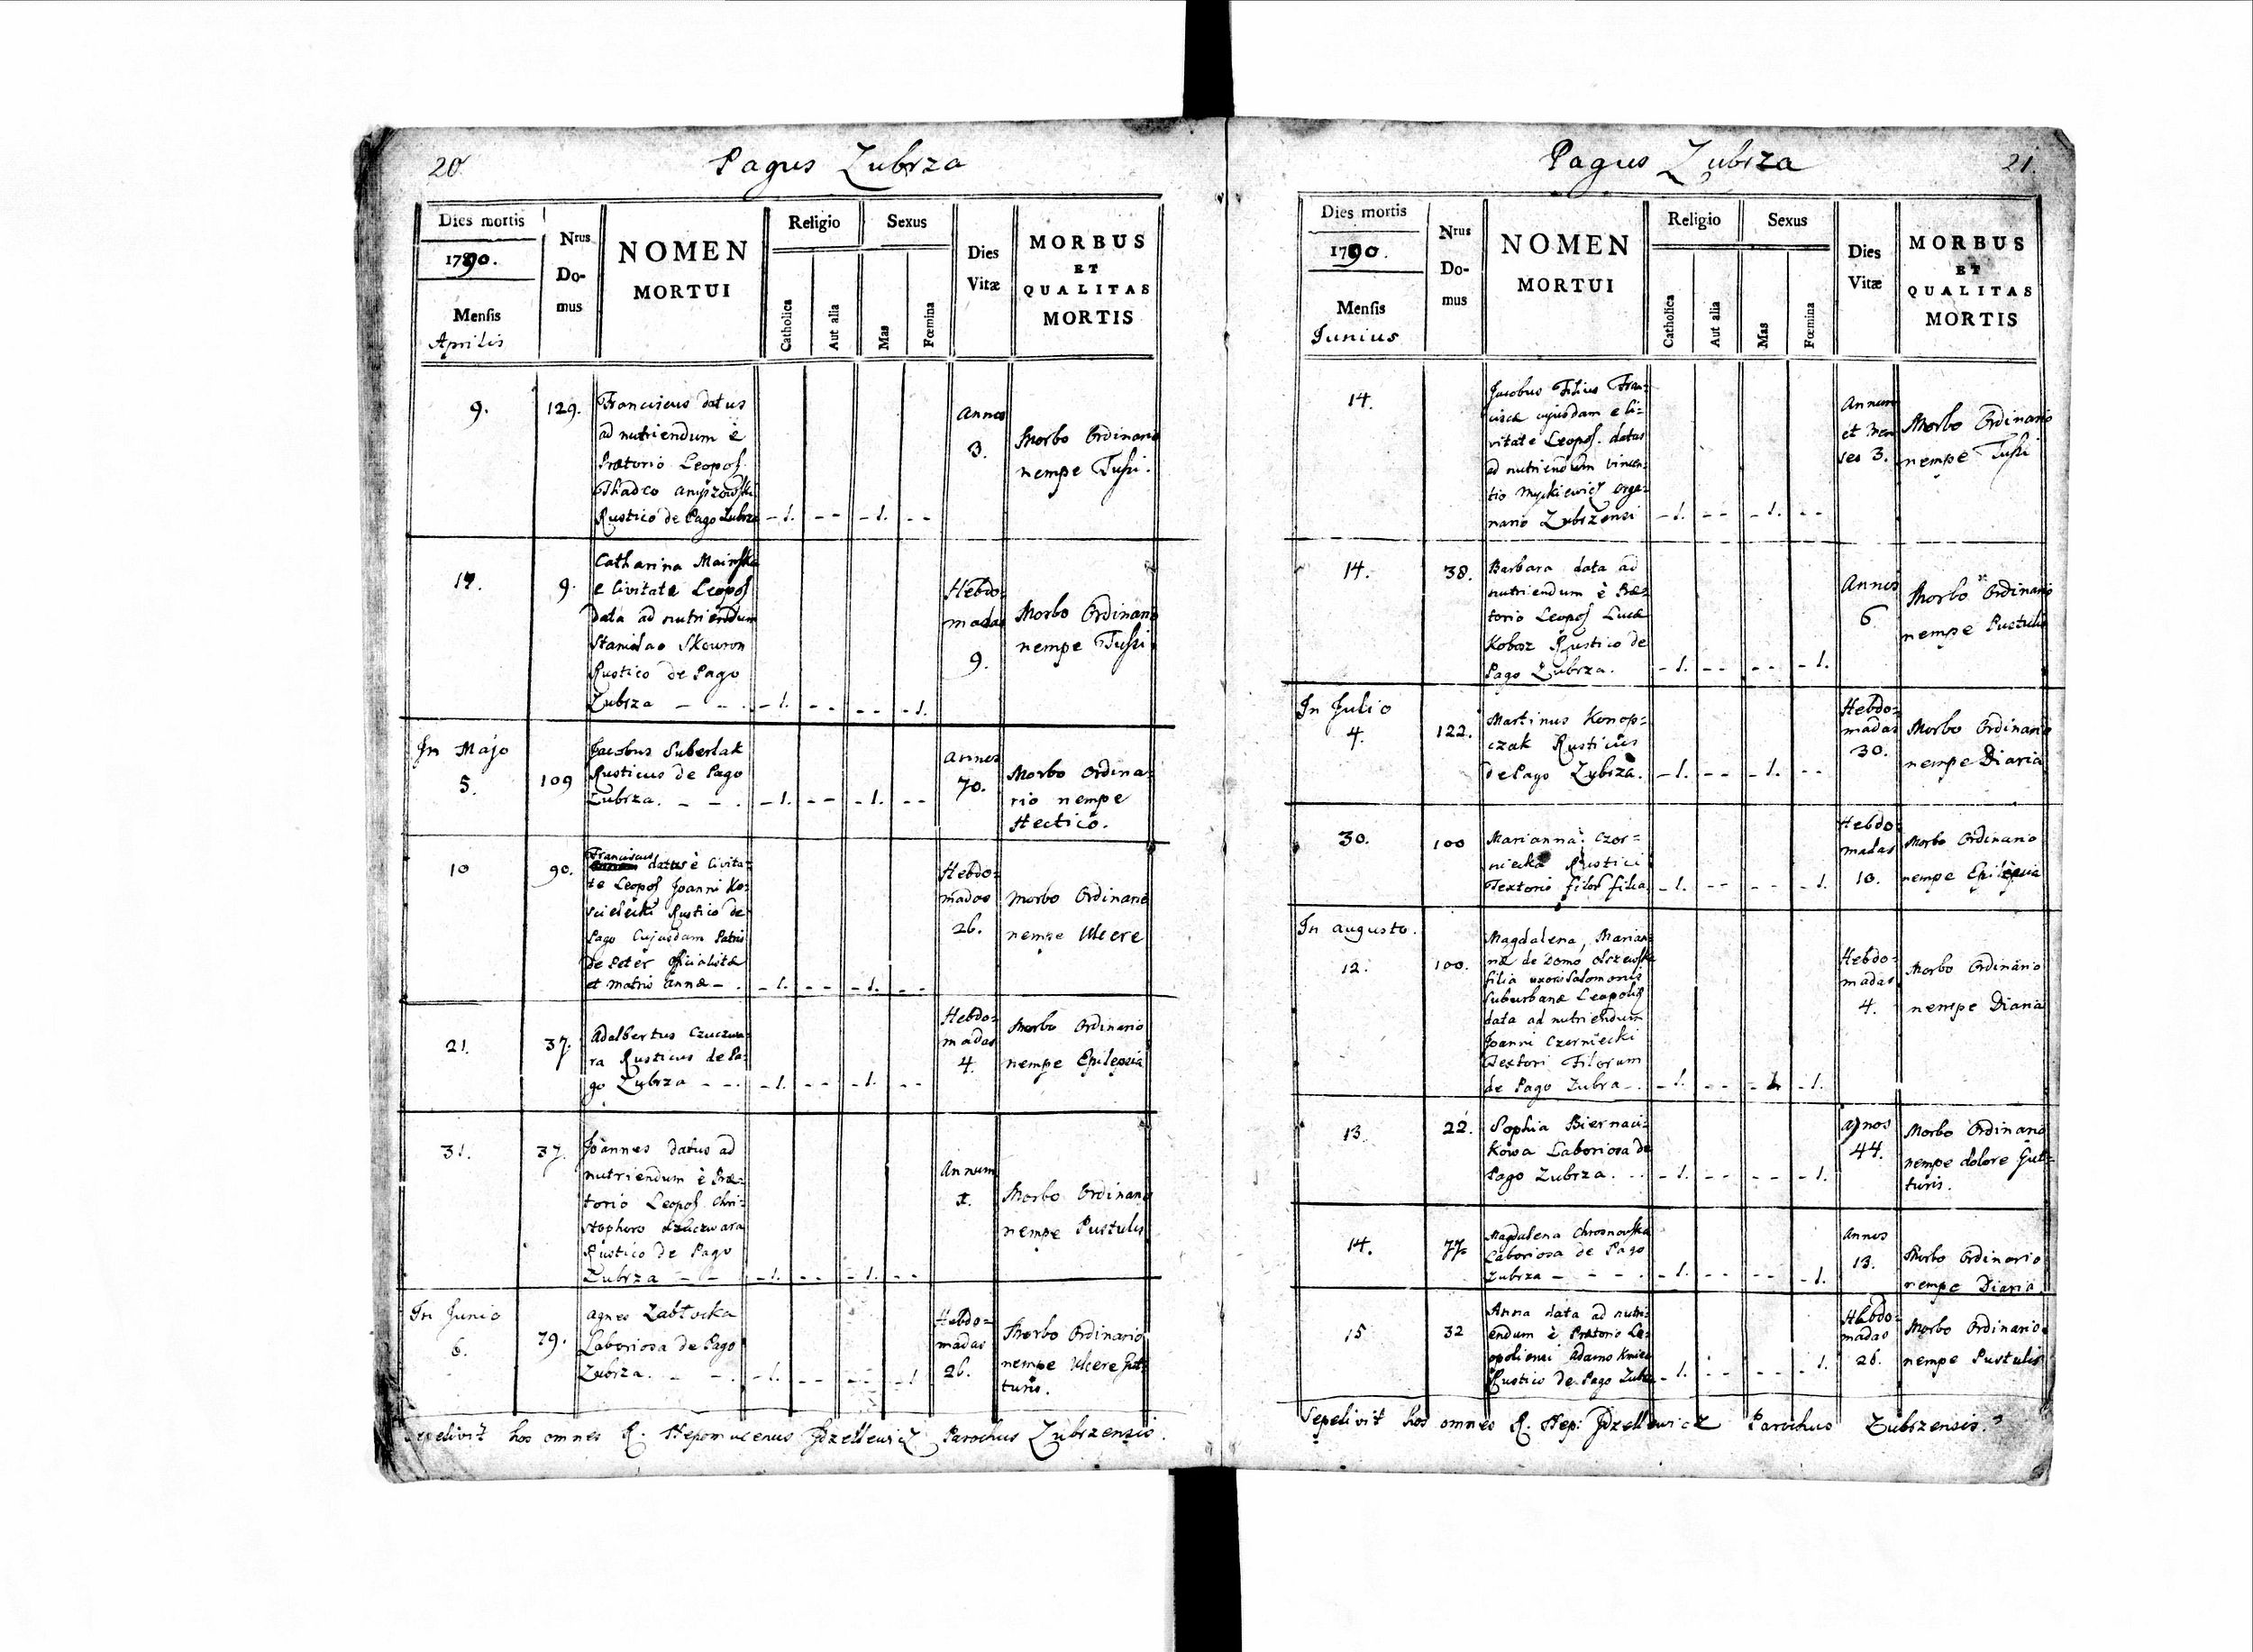 20.
Pagus Zubrza
Dies mortis
1790.
Mensis
Aprilis
Nrus
Do-
mus
NOMEN
MORTUI
Religio
Catholica
Aut alia
Sexus
Mas
Fœmina
Dies
Vitæ
MORBUS
ET
QUALITAS
MORTIS
9.
129.
Franciscus datus
ad nutriendum è
Prætorio Leopol.
Thadeo
Rustico de Pago Zubrza
- 1.
- -
- 1.
- -
Annos
3.
Morbo Ordinario
nempe Tussi.
14.
9.
Catharina Mainska
e Civitate Leopol
data ad nutriendum
Stanislao Skowron
Rustico de Pago
Zubrza - - .
- 1.
- -
- -
- 1.
Hebdo-
madas
9.
Morbo Ordinario
nempe Tussi.
In Majo
5.
109
Jacobus Suberlak
Rusticus de Pago
Zubrza. - - .
- 1.
- -
- 1.
- -
Annos
70.
Morbo Ordina-
rio nempe
Hectico.
10
90.
Franciscus
datus è Civita-
te Leopol Joanni Ko-
scielecki Rustico de
Pago Cujusdam Patris
de Peter oficialistæ
et Matris Annæ - .
- 1.
- -
- 1.
- -
Hebdo-
madas
26.
Morbo Ordinario
nempe Ulcere
21.
37.
Adalbertus Czuczwa-
ra Rusticus de Pa-
go Zubrza - - .
- 1.
- -
- 1.
- -
Hebdo-
madas
4.
Morbo Ordinario
nempe Epilepsia
31.
37.
Joannes datus ad
nutriendum è Præ-
torio Leopol Chri-
stophoro Czuczwara
Rustico de Pago
Zubrza - -
- 1.
- -
- 1.
- -
Annum
1.
Morbo Ordinario
nempe Pustulis
In Junio
6.
79.
Agnes Zabłocka
Laboriosa de Pago
Zubrza. - - .
- 1.
- -
- -
- 1
Hebdo-
madas
26.
Morbo Ordinario
nempe Ulcere Gut-
turis.
Sepelivit hos omnes R. Nepomucenus Parochus Zubrzensis.
21.
Pagus Zubrza
Dies mortis
1790.
Mensis
Junius
Nrus
Do-
mus
NOMEN
MORTUI
Religio
Catholica
Aut alia
Sexus
Mas
Fœmina
Dies
Vitæ
MORBUS
ET
QUALITAS
MORTIS
14.
Jacobus Filius Fran-
ciscæ cujusdam e Ci-
vitate Leopol. datus
ad nutriendum Vincen-
tio Myckiewicz Orga-
nario Zubrzensi
- 1.
- -
- 1.
- -
Annum
et Men
ses 3.
Morbo Ordinario
nempe Tussi
14.
38.
Barbara data ad
nutriendum è Præ-
torio Leopol Lucæ
Koboz Rustico de
Pago Zubrza.
- 1.
- -
- -
- 1.
Annos
6
Morbo Ordinario
nempe Pustulis
In Julio
4.
122.
Martinus Konop-
czak Rusticus
de Pago Zubrza.
- 1.
- -
- 1.
- -
Hebdo-
madas
30.
Morbo Ordinario
nempe Diaria
30.
100
Marianna Czor-
niecka Rustici
Textoris filor filia
- 1.
- -
- -
- 1.
Hebdo-
madas
10.
Morbo Ordinario
nempe Epilepsia
In Augusto.
12.
100.
Magdalena, Marian-
næ de Domo Olszewska
filia uxoris Salomonis
Suburbanæ Leopolis
data ad nutriendum
Joanni Czerniecki
Textori Filorum
de Pago Zubra - .
- 1.
- -
- 1.
- 1.
Hebdo-
madas
4.
Morbo Ordinario
nempe Diaria
13.
22.
Sophia Biernaci-
kowa Laboriosa de
Pago Zubrza. - .
- 1.
- -
- -
- 1.
Annos
44.
Morbo Ordinario
nempe dolore Gut-
turis.
14.
77.
Magdalena Chrosnowska
Laboriosa de Pago
Zubrza - - - .
- 1.
- -
- -
- 1.
Annos
13.
Morbo Ordinario
nempe Diaria
15
32
Anna data ad nutri-
endum è Prætorio Le-
opoliensi Adamo Kmiec
Rustico de Pago Zubrza
- 1.
- -
- -
- 1.
Hebdo-
madas
26.
Morbo Ordinario
nempe Pustulis
Sepelivit hos omnes R. Nep: Parochus Zubrzensis.